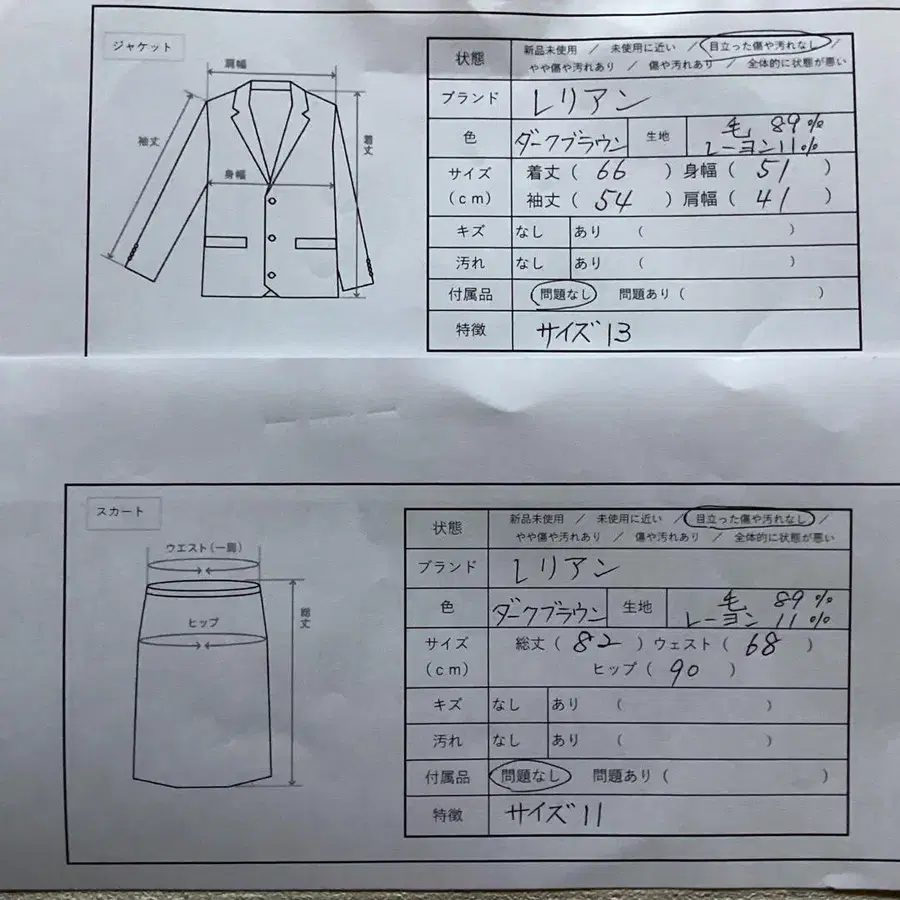 ジャケット
肩幅
袖丈
着丈
身幅
状態 新品未使用 / 未使用に近い / 目立った傷や汚れなし /
やや傷や汚れあり / 傷や汚れあり / 全体的に状態が悪い
ブランド レリアン
色 ダークブラウン 生地 毛 89%
レーヨン11%
サイズ 着丈 ( 66 ) 身幅 ( 51 )
(cm) 袖丈 ( 54 ) 肩幅 ( 41 )
キズ なし あり ( )
汚れ なし あり ( )
付属品 問題なし 問題あり ( )
特徴 サイズ13
スカート
ウエスト(一周)
ヒップ
総丈
状態 新品未使用 / 未使用に近い / 目立った傷や汚れなし /
やや傷や汚れあり / 傷や汚れあり / 全体的に状態が悪い
ブランド レリアン
色 ダークブラウン 生地 毛 89%
レーヨン 11%
サイズ 総丈 ( 82 ) ウェスト ( 68 )
(cm) ヒップ ( 90 )
キズ なし あり ( )
汚れ なし あり ( )
付属品 問題なし 問題あり ( )
特徴 サイズ11